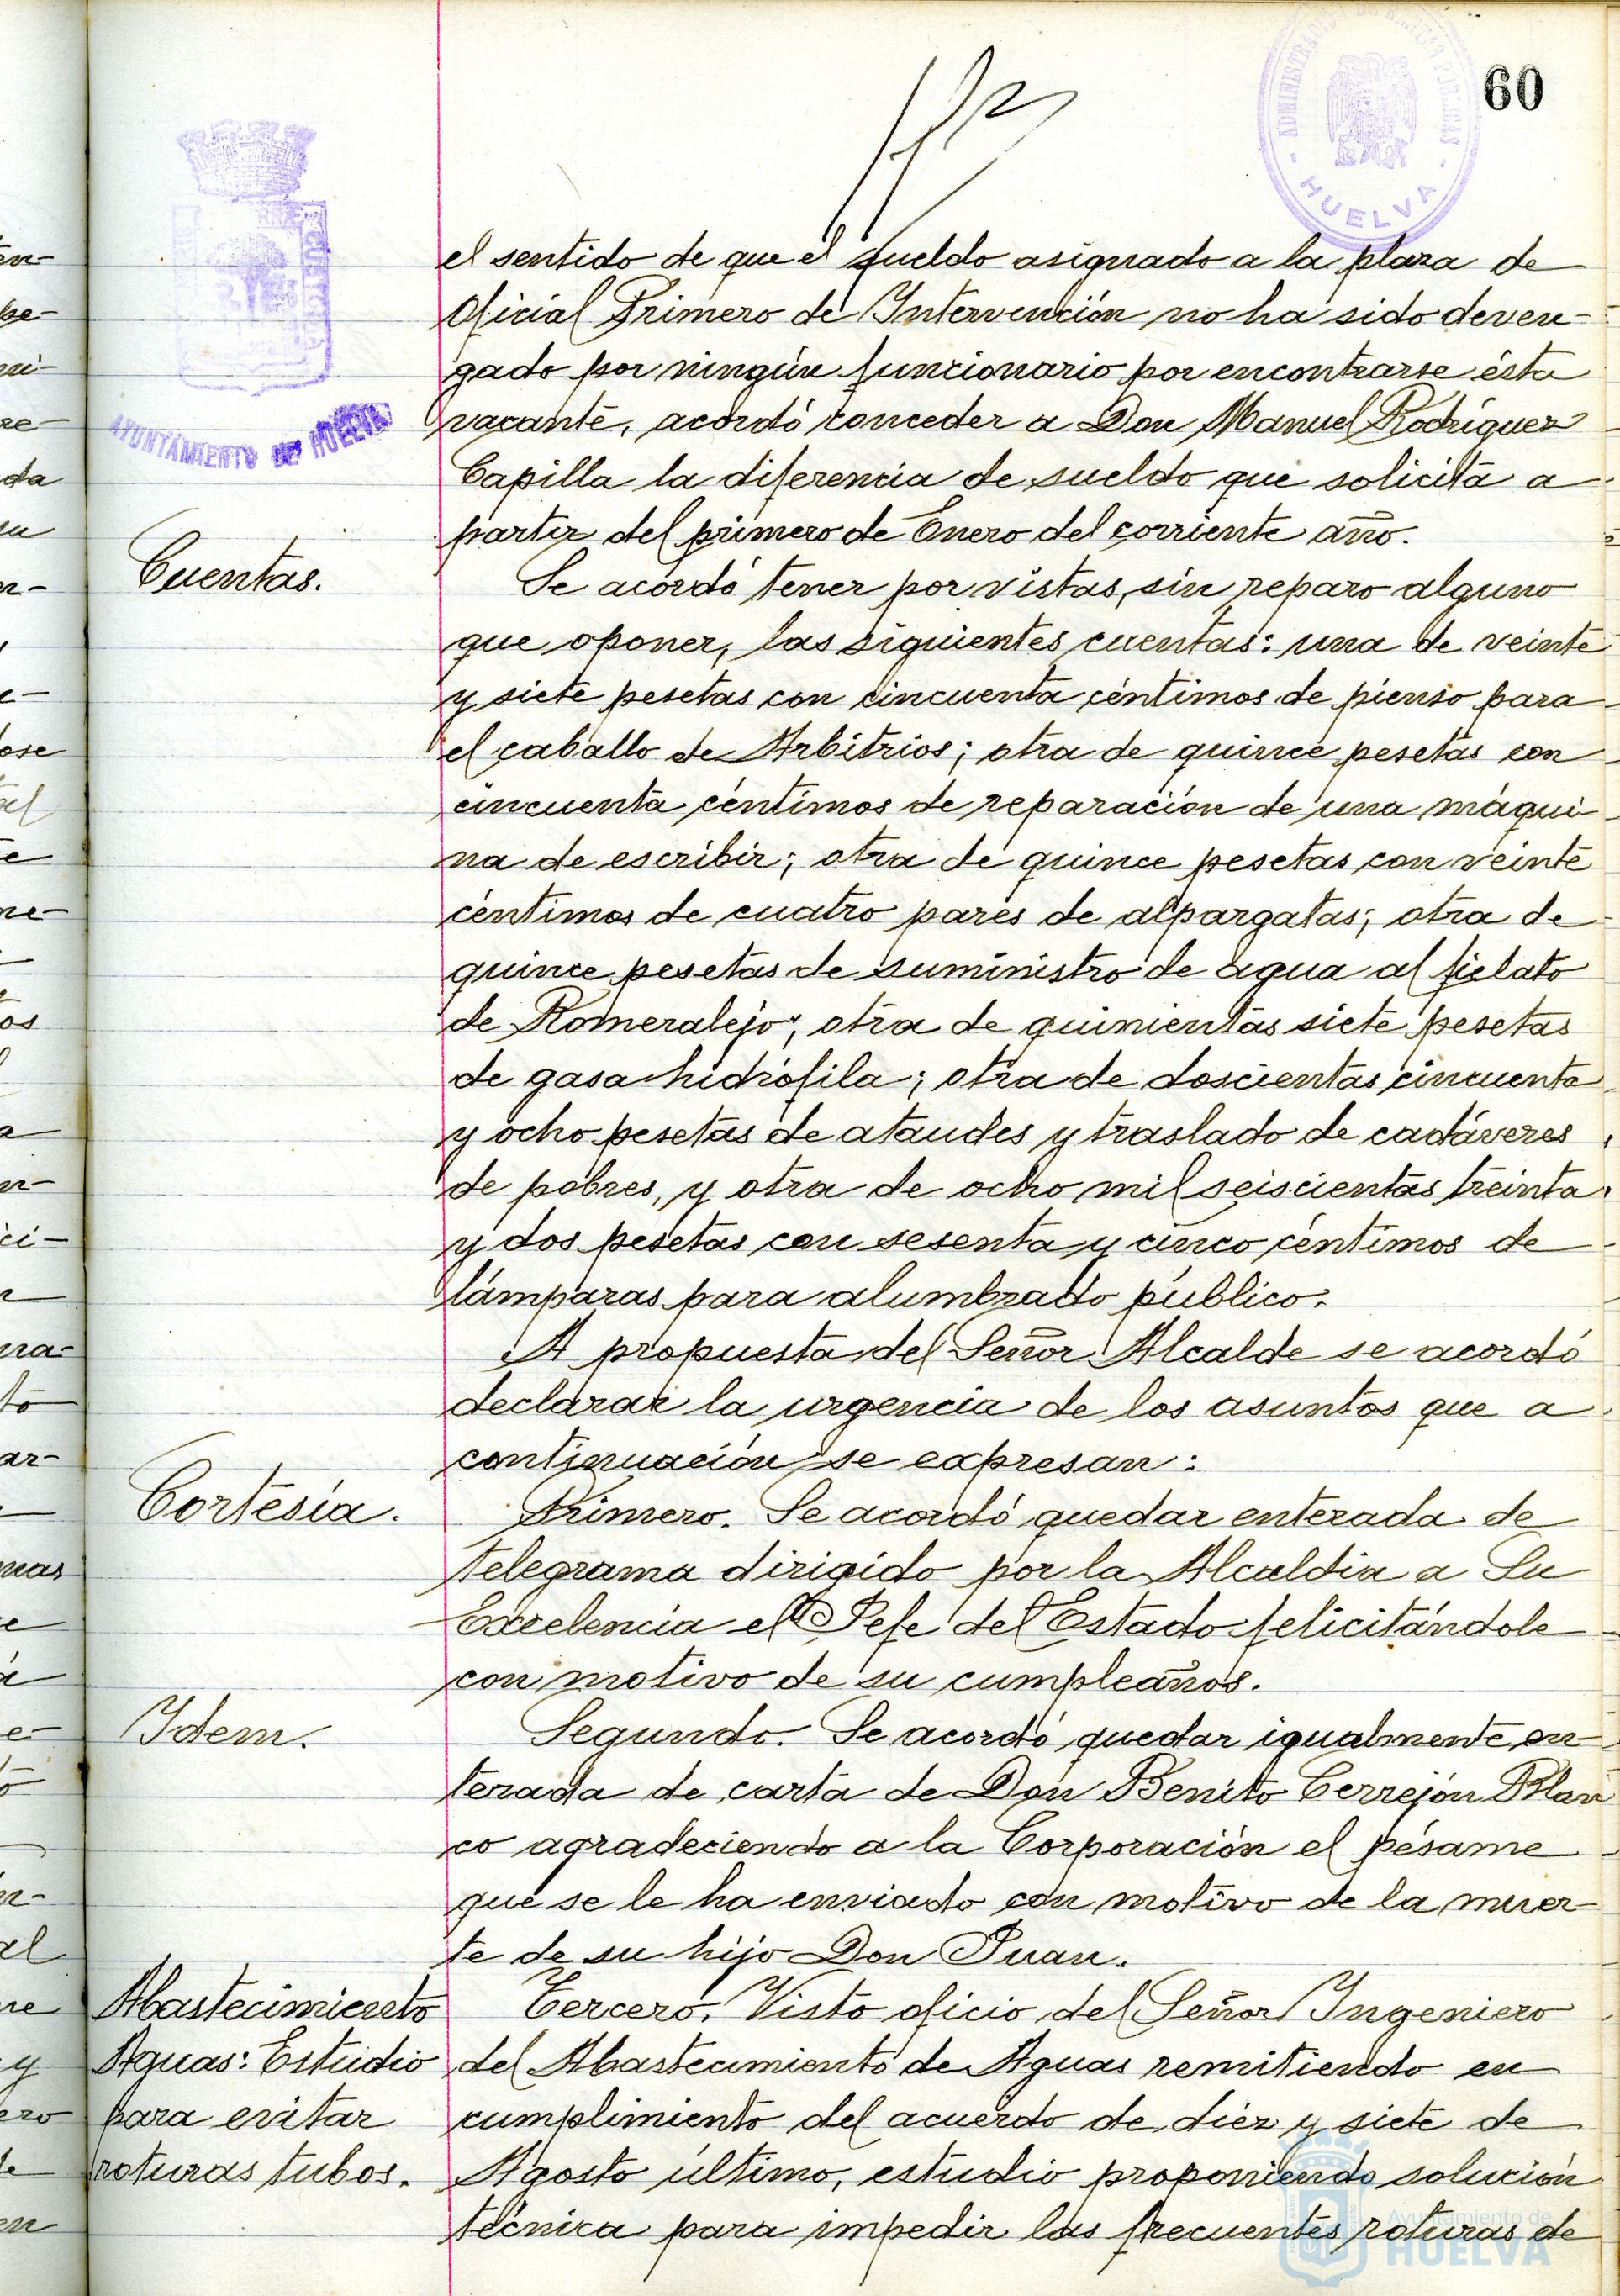 60
ADMINISTRACIÓN DE RENTAS PÚBLICAS
- HUELVA -
AYUNTAMIENTO DE HUELVA
el sentido de que el sueldo asignado a la plaza de
Oficial Primero de Intervención no ha sido deven-
gado por ningún funcionario por encontrarse ésta
vacante, acordó conceder a Don Manuel Rodríguez
Capilla la diferencia de sueldo que solicita a
partir del primero de Enero del corriente año.
Cuentas.
Se acordó tener por vistas, sin reparo alguno
que oponer, las siguientes cuentas: una de veinte
y siete pesetas con cincuenta céntimos de pienso para
el caballo de Arbitrios; otra de quince pesetas con
cincuenta céntimos de reparación de una máqui-
na de escribir; otra de quince pesetas con veinte
céntimos de cuatro pares de alpargatas; otra de
quince pesetas de suministro de agua al fielato
de Romeralejo; otra de quinientas siete pesetas
de gasa hidrófila; otra de doscientas cincuenta
y ocho pesetas de ataudes y traslado de cadáveres
de pobres, y otra de ocho mil seiscientas treinta
y dos pesetas con sesenta y cinco céntimos de
lámparas para alumbrado público.
A propuesta del Señor Alcalde se acordó
declarar la urgencia de los asuntos que a
continuación se expresan:
Cortesía.
Primero. Se acordó quedar enterada de
telegrama dirigido por la Alcaldia a Su
Excelencia el Jefe del Estado felicitándole
con motivo de su cumpleaños.
Idem.
Segundo. Se acordó quedar igualmente en-
terada de carta de Don Benito Cerrejón Blan
co agradeciendo a la Corporación el pésame
que se le ha enviado con motivo de la muer-
te de su hijo Don Juan.
Abastecimiento
Aguas: Estudio
para evitar
roturas tubos.
Tercero. Visto oficio del Señor Ingeniero
del Abastecimiento de Aguas remitiendo en
cumplimiento del acuerdo de diez y siete de
Agosto último, estudio proponiendo solución
técnica para impedir las frecuentes roturas de
Ayuntamiento de
HUELVA